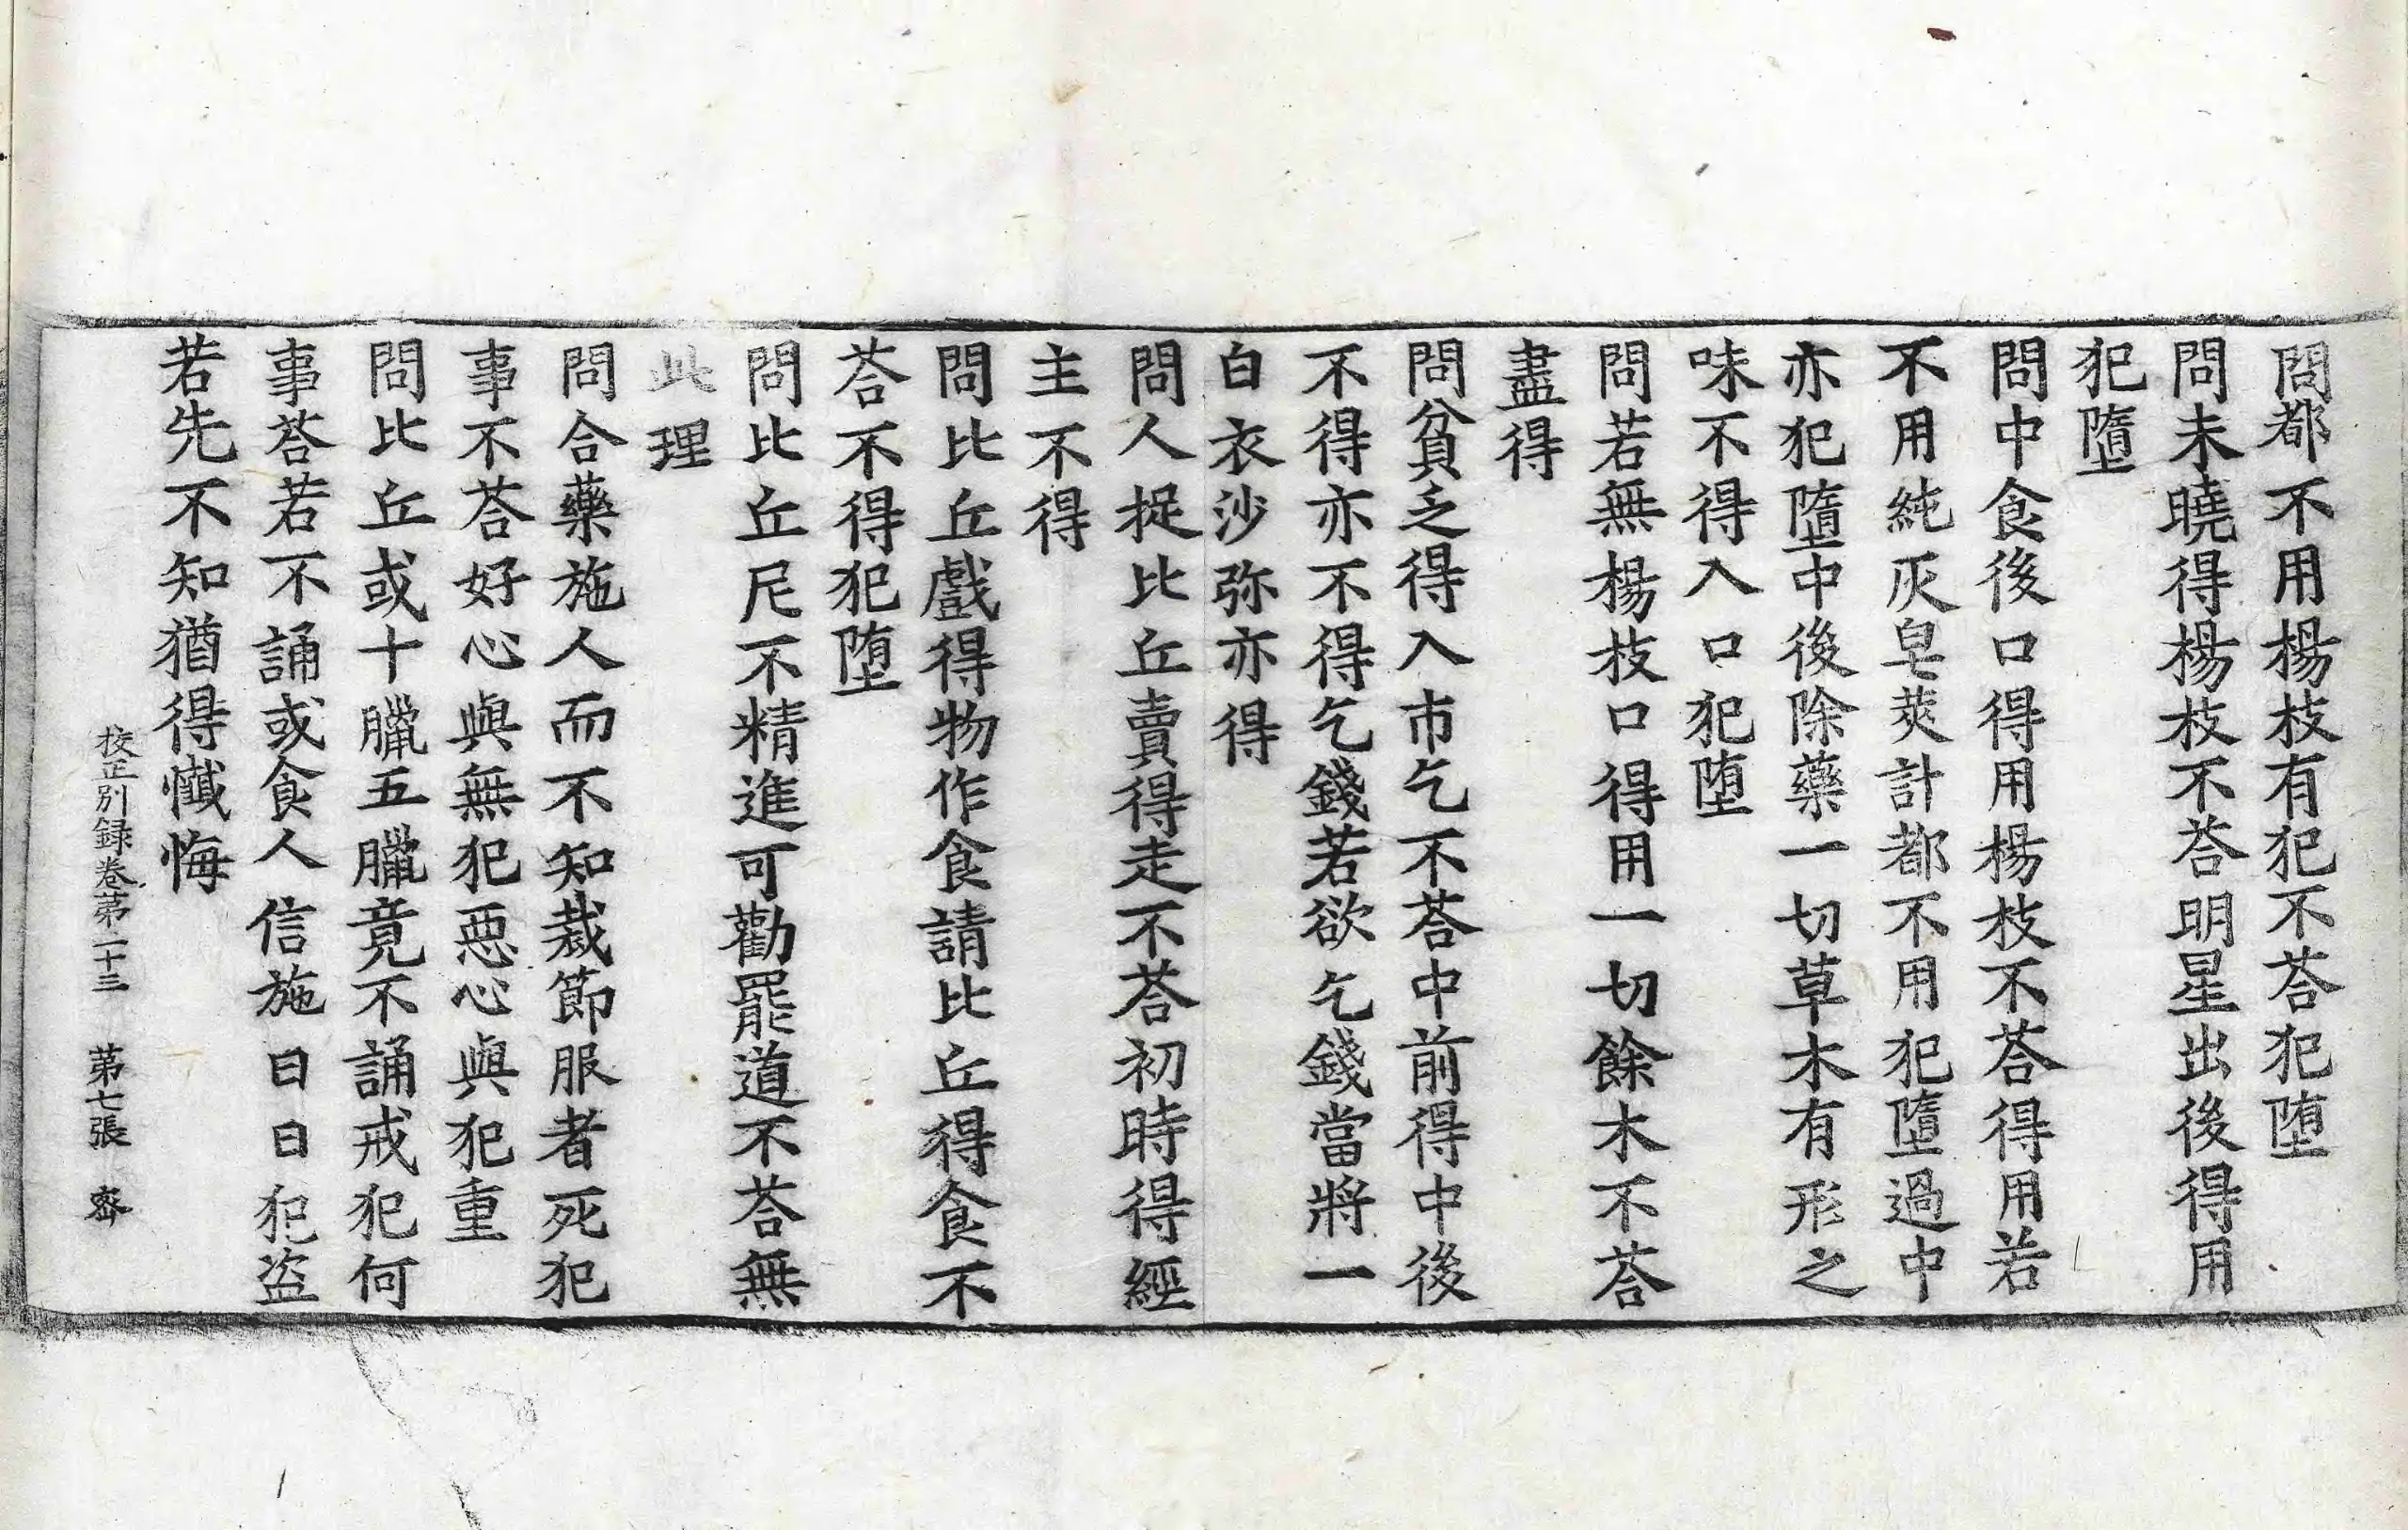 問都不用楊枝有犯不荅犯堕
問未曉得楊枝不荅明星出後得用
犯墮
問中食後口得用楊枝不荅得用若
不用純灰皂莢計都不用犯墮過中
亦犯墮中後除藥一切草木有形之
味不得入口犯堕
問若無楊枝口得用一切餘木不荅
盡得
問貧乏得入市乞不荅中前得中後
不得亦不得乞錢若欲乞錢當將一
白衣沙弥亦得
問人捉比丘賣得走不荅初時得經
主不得
問比丘戲得物作食請比丘得食不
荅不得犯堕
問比丘尼不精進可勸罷道不荅無
此理
問合藥施人而不知裁節服者死犯
事不荅好心與無犯惡心與犯重
問比丘或十臘五臘竟不誦戒犯何
事荅若不誦或食人信施日日犯盗
若先不知猶得懴悔
校正別録卷苐二十三 苐七張 宻